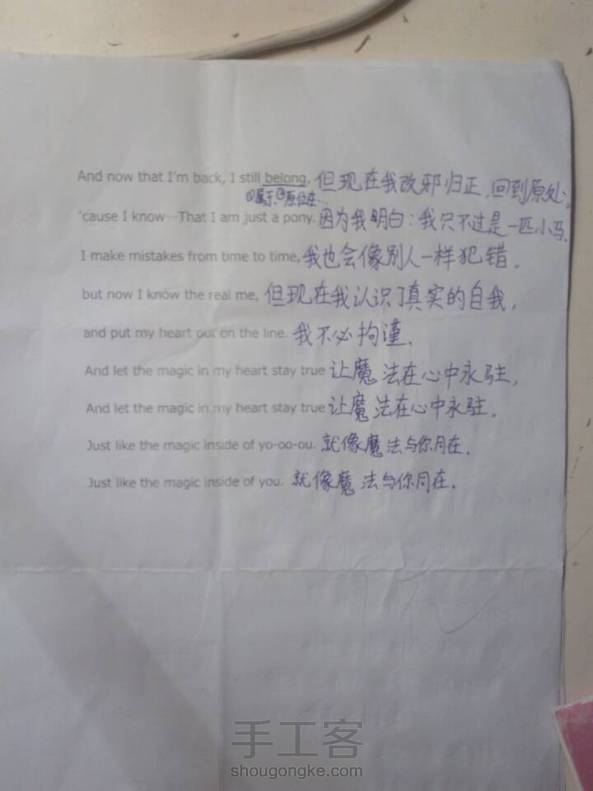 And now that I'm back, I still belong, 但现在我改邪归正,回到原处;
①属于 ②原位在…
'cause I know—That I am just a pony. 因为我明白:我只不过是一匹小马,
I make mistakes from time to time, 我也会像别人一样犯错,
but now I know the real me, 但现在我认识了真实的自我,
and put my heart out on the line. 我不必拘谨.
And let the magic in my heart stay true 让魔法在心中永驻,
And let the magic in my heart stay true 让魔法在心中永驻.
Just like the magic inside of yo-oo-ou. 就像魔法与你同在.
Just like the magic inside of you. 就像魔法与你同在.
手工客
shougongke.com